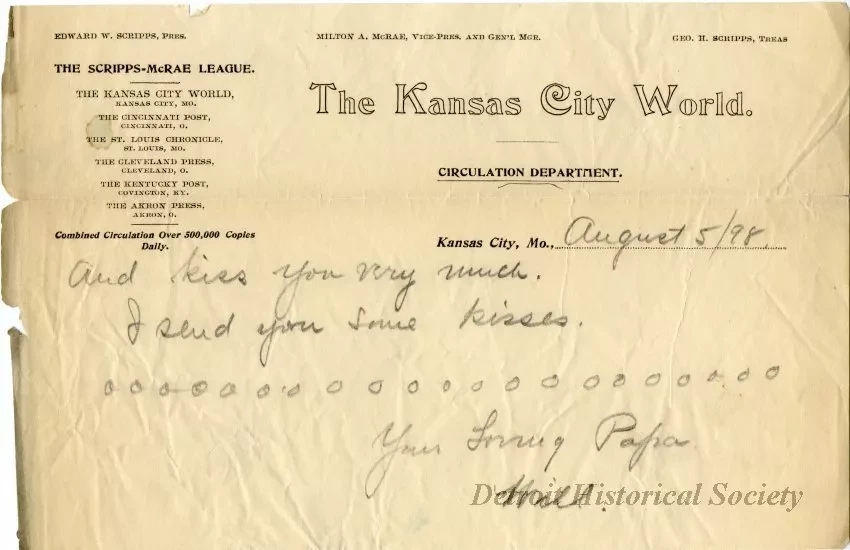 EDWARD W. SCRIPPS, PRES.
MILTON A. McRAE, VICE-PRES. AND GEN'L MGR.
GEO. H. SCRIPPS, TREAS
THE SCRIPPS-McRAE LEAGUE.
THE KANSAS CITY WORLD,
KANSAS CITY, MO.
THE CINCINNATI POST,
CINCINNATI, O.
THE ST. LOUIS CHRONICLE,
ST. LOUIS, MO.
THE CLEVELAND PRESS,
CLEVELAND, O.
THE KENTUCKY POST,
COVINGTON, KY.
THE AKRON PRESS,
AKRON, O.
Combined Circulation Over 500,000 Copies
Daily.
The Kansas City World.
CIRCULATION DEPARTMENT.
Kansas City, Mo., August 5/98.
And kiss you very much.
I send you some kisses.
o o o o o o o o o o o o o o o o o o o o o o o
Your Loving Papa
Detroit Historical Society